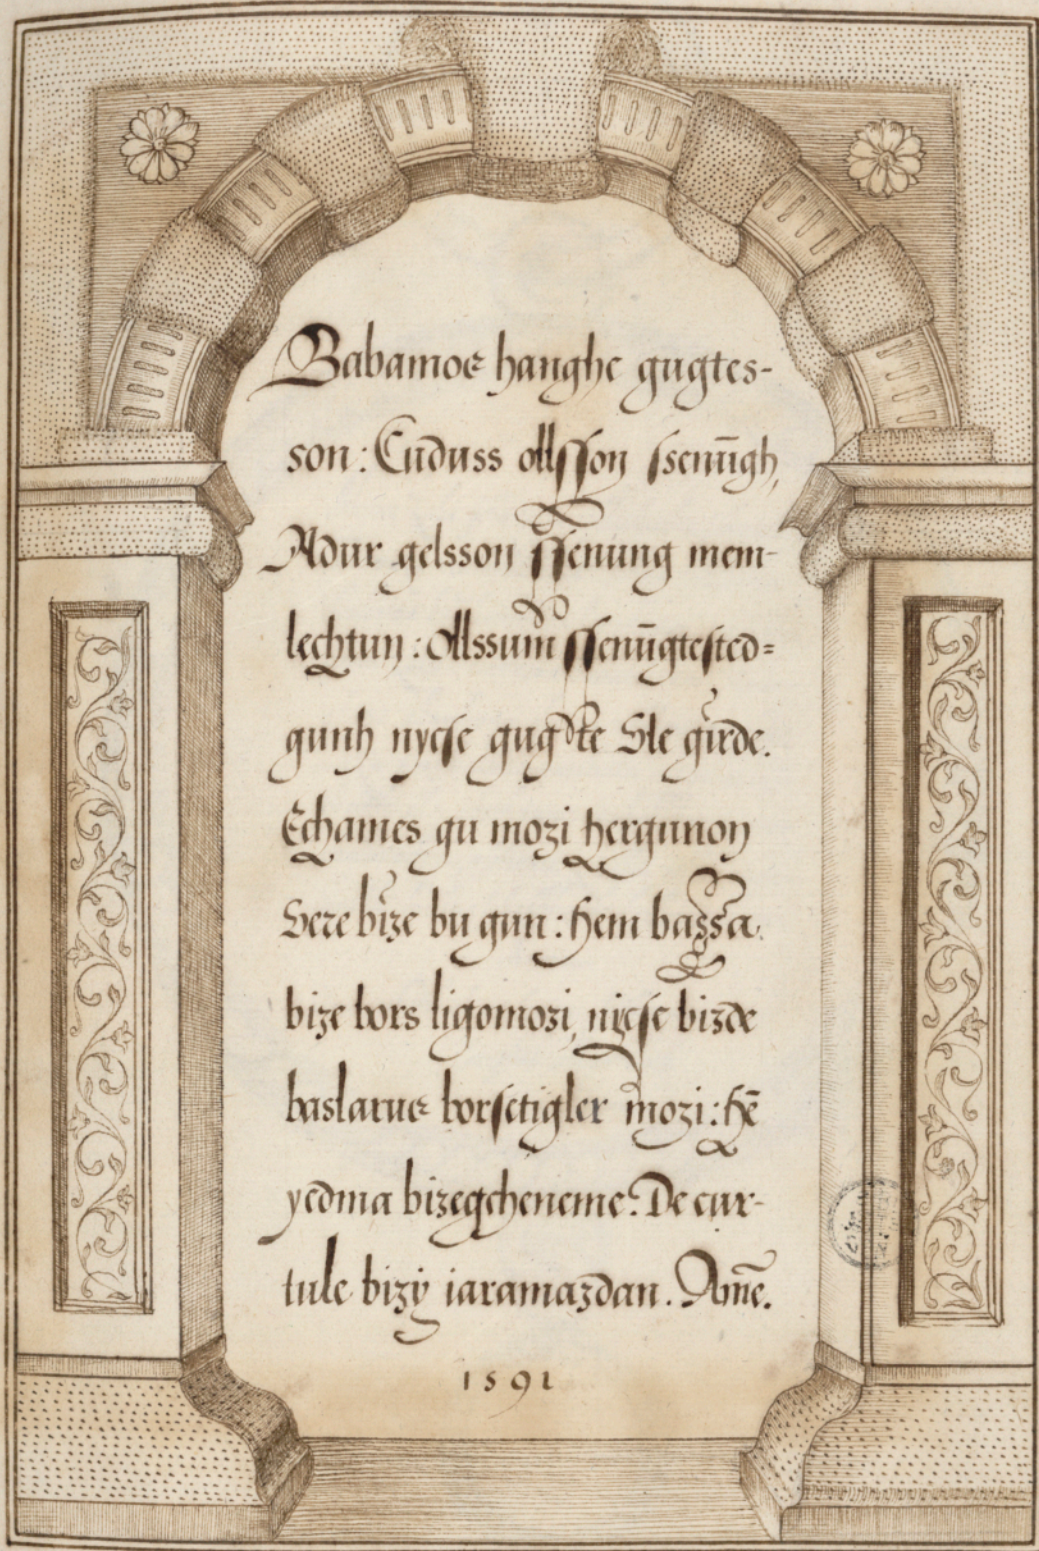 Babamoz hanghe gugtes-
son: Cuduss ollsson ssenūgh,
Adur gelsson ssenung mem-
lechtun: ollssum ssenūgtested=
gunh nyese gugdte Sle girde.
Echames gu mozi hergunon
Sere bize bu gun: hem bassa
bize bors ligomozi, niese bizde
baslaruz borsetigler mozi: hē
yedma bizegcheneme: De cur-
tule bizÿ iaramazdan. Amē.
1591